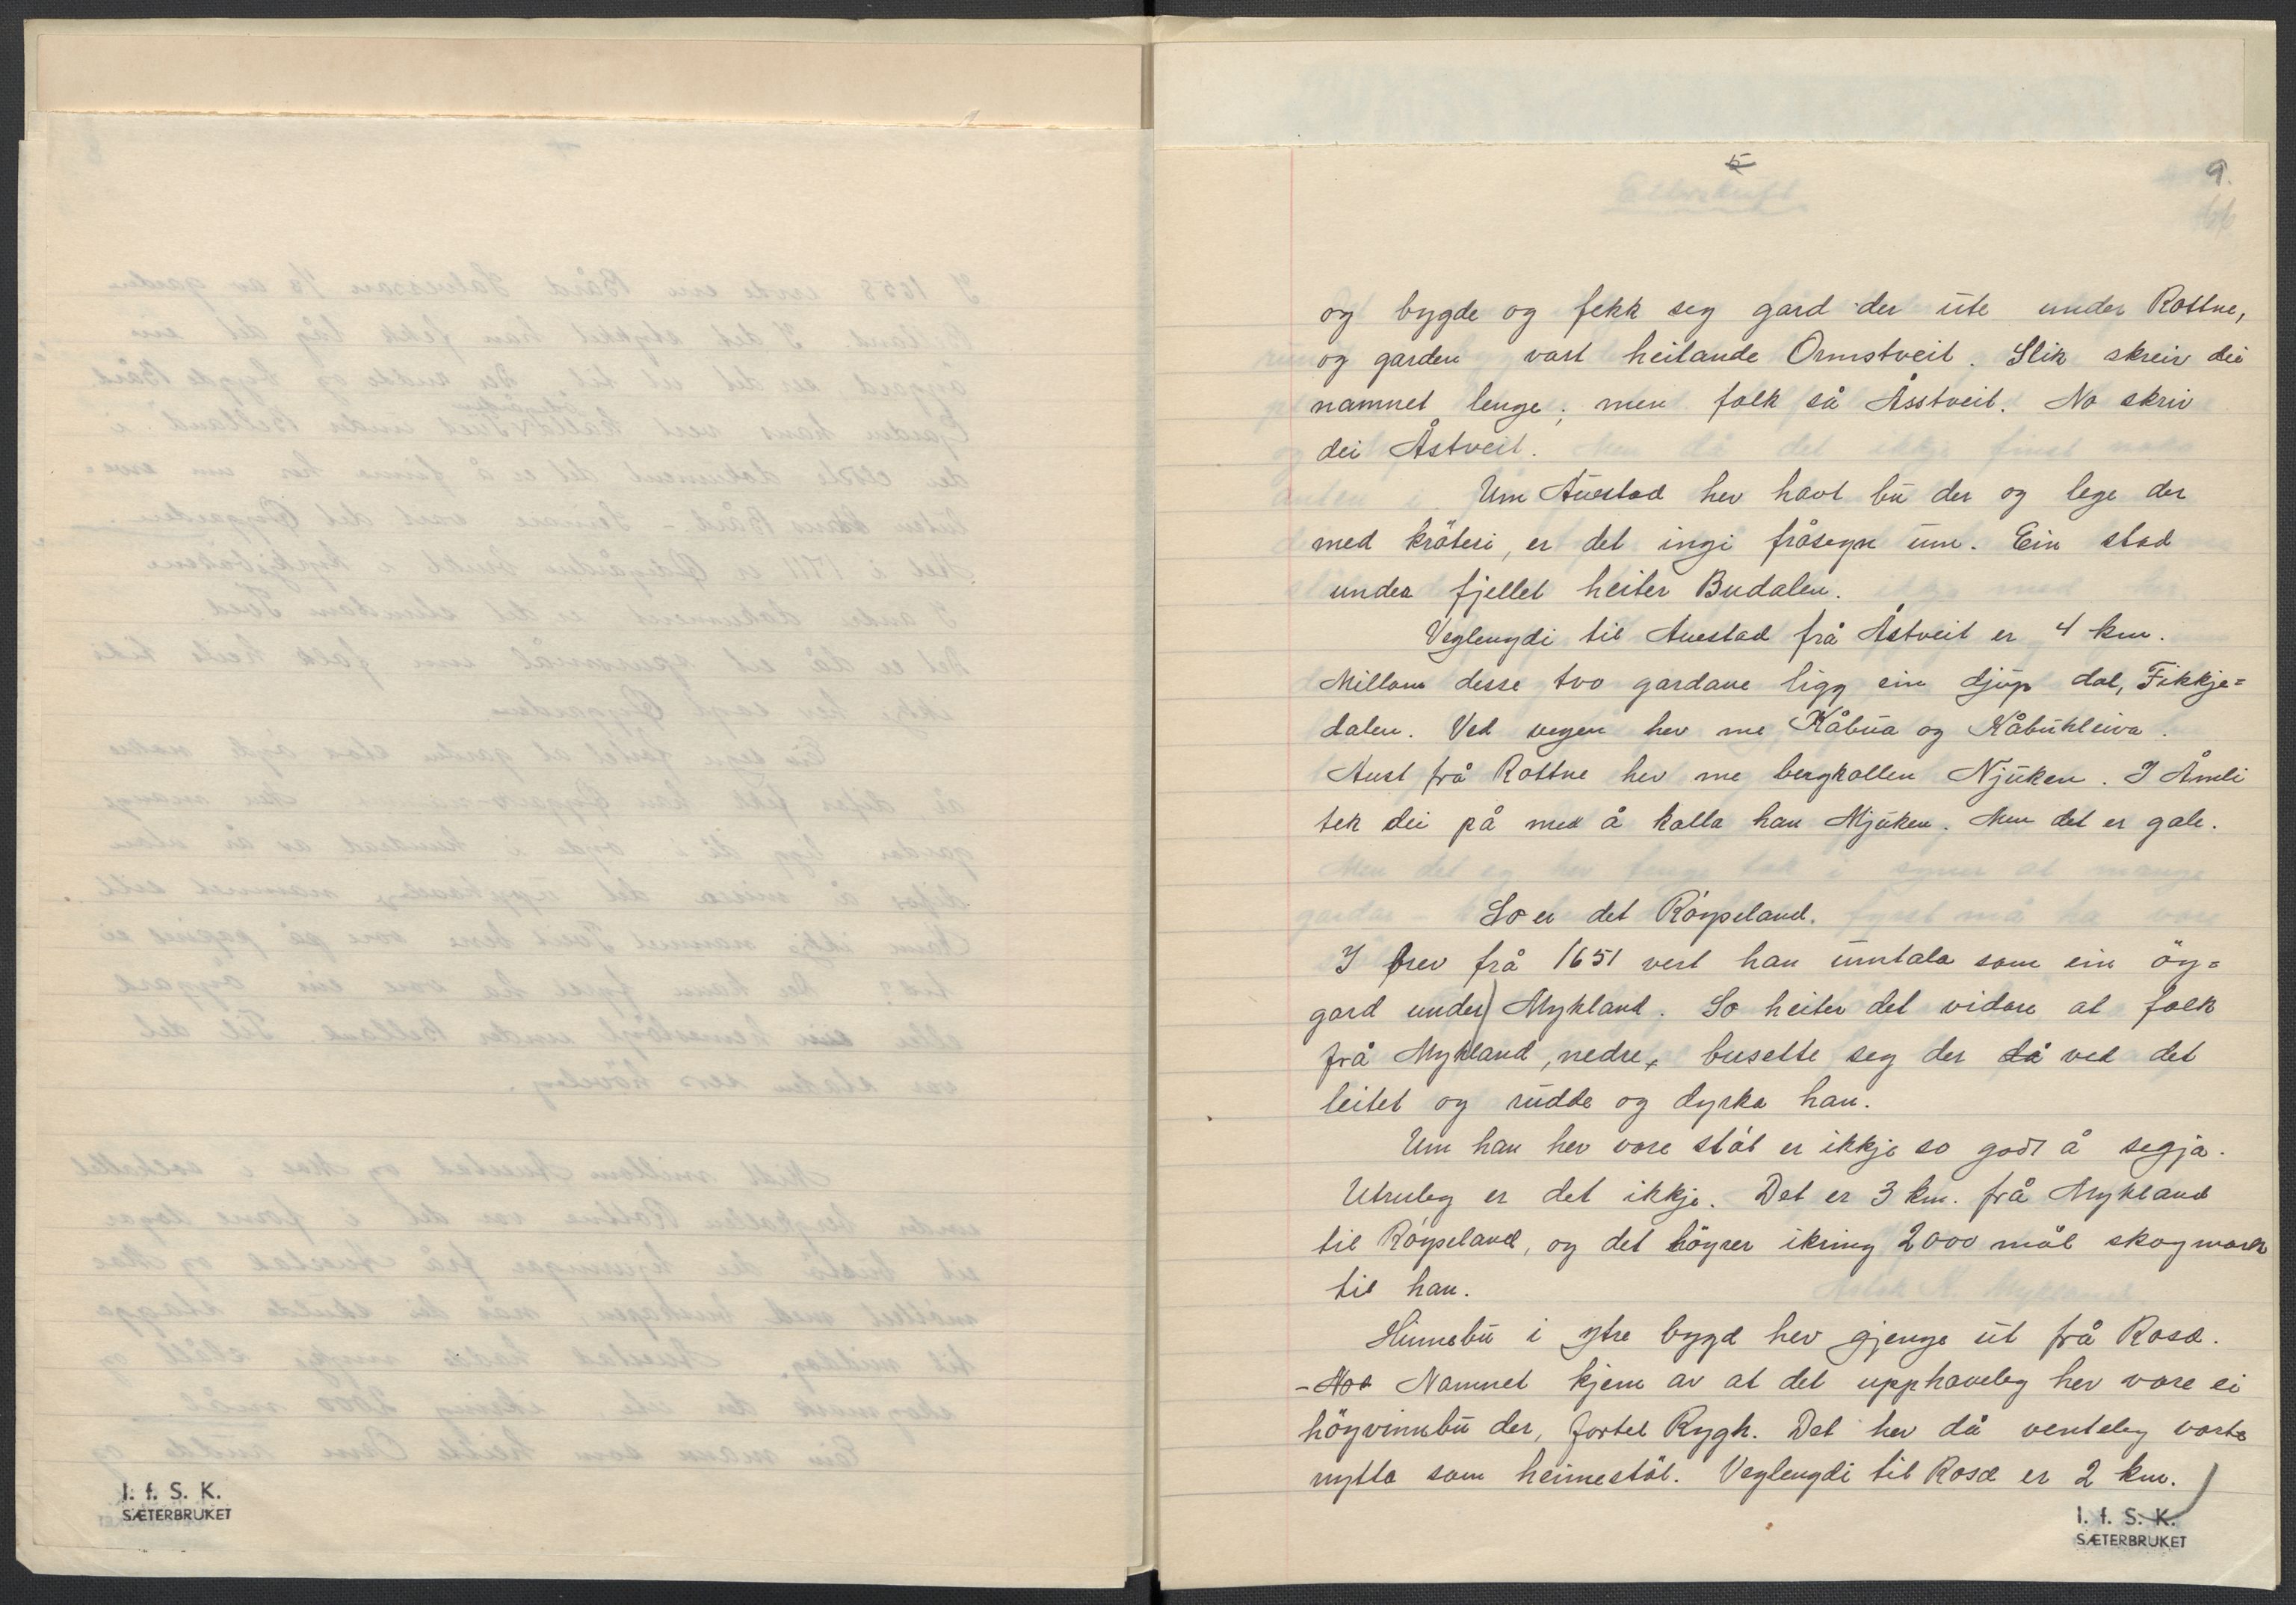 5
9.
og bygde og fekk seg gard der ute under Rottne,
og garden vart heitande Ormstveit. Slik skreiv dei
namnet lenge; men folk så Åsstveit. No skriv
dei Åstveit.
Um Austad hev havt bu der og lege der
med kröteri, er det ingi fråsegn um. Ein stad
under fjellet heiter Budalen.
Veglengdi til Austad frå Åstveit er 4 km.
Millom desse tvo gardane ligg ein djup dal, Fikkje=
dalen. Ved vegen hev me Kåbua og Kåbukleiva.
Aust frå Rottne hev me bergkollen Njuken. I Åmli
tek dei på med å kalla han Mjuken. Men det er gale.
So er det Röyseland.
I brev frå 1651 vert han umtala som ein öy=
gard under Mykland. So heiter det vidare at folk
frå Mykland, nedre, busette seg der då ved det
leitet og rudde og dyrka han.
Um han hev vore stöl er ikkje so godt å segja.
Utruleg er det ikkje. Det er 3 km. frå Mykland
til Röyseland, og det höyrer ikring 2000 mål skogmark
til han.
Hinnebu i ytre bygd hev gjenge ut frå Roså.
- Nos Namnet kjem av at det upphaveleg hev vore ei
höyvinnbu der, fortel Rygh. Det hev då venteleg vorte
nytta som heimestöl. Veglengdi til Roså er 2 km.
I. f. S. K.
SÆTERBRUKET
I. f. S. K.
SÆTERBRUKET